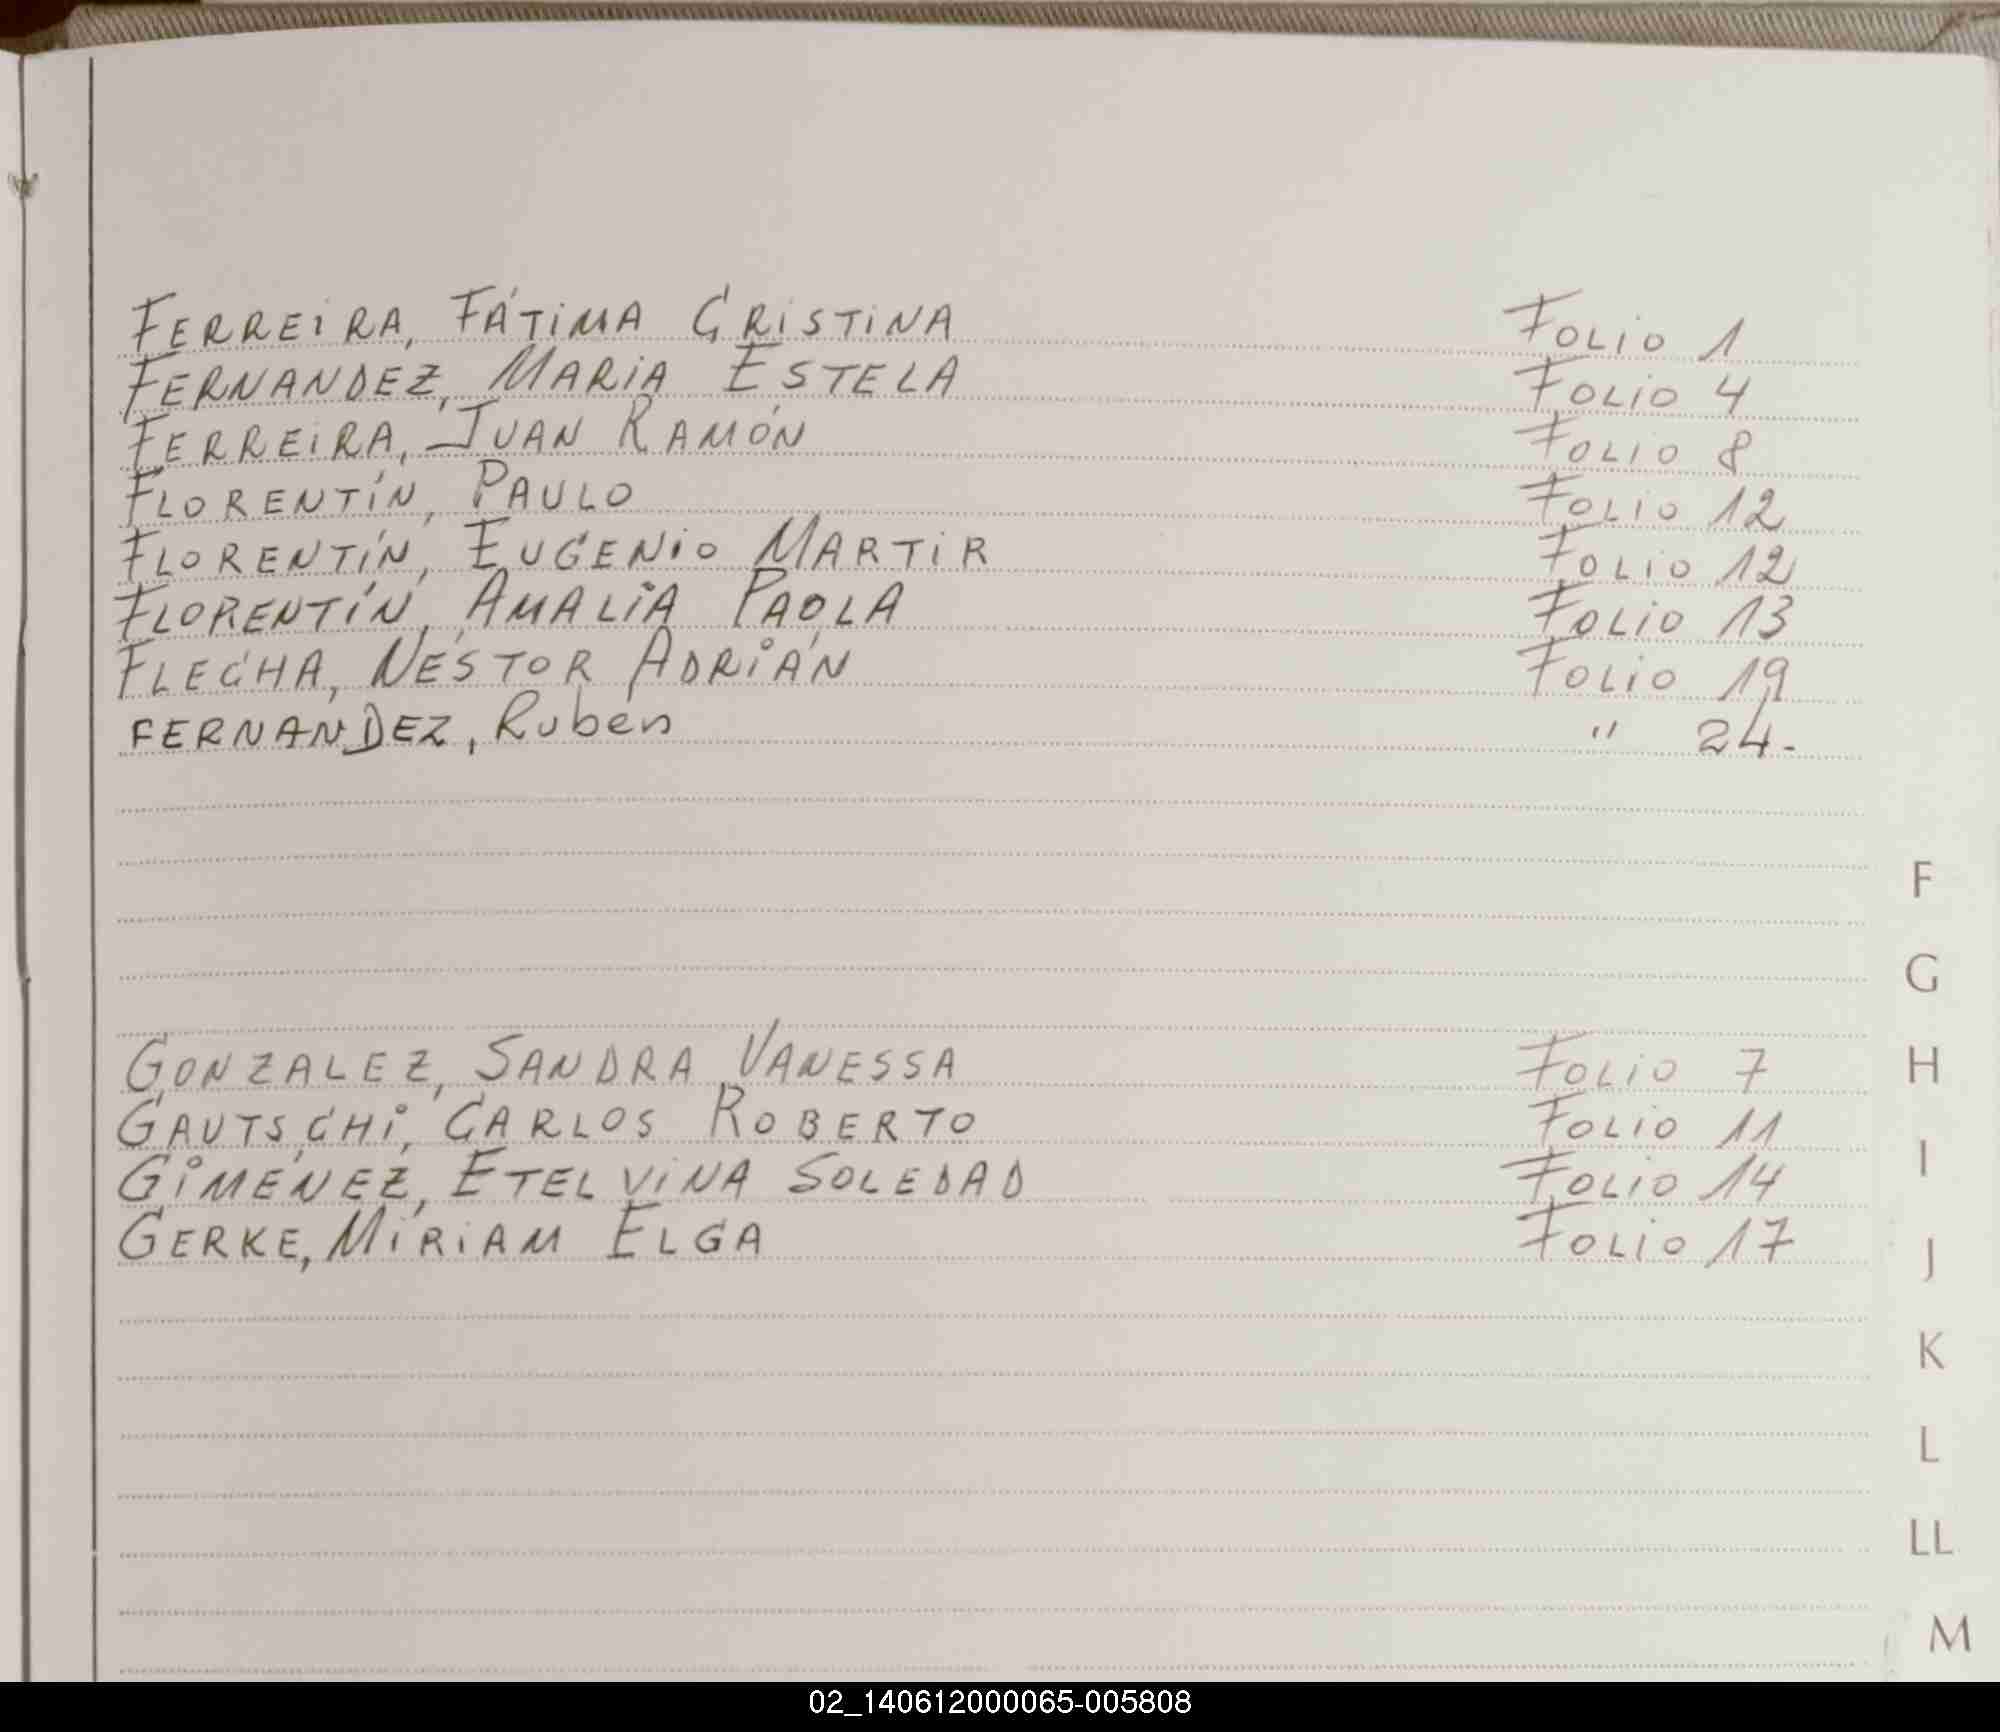 FERREIRA, FÁTIMA CRISTINA Folio 1
FERNANDEZ, MARIA ESTELA Folio 4
FERREIRA, JUAN RAMÓN Folio 8
FLORENTÍN, PAULO Folio 12
FLORENTÍN, EUGENIO MARTIR Folio 12
FLORENTÍN, AMALIA PAOLA Folio 13
FLECHA, NÉSTOR ADRIÁN Folio 19
FERNANDEZ, Ruben " 24.
GONZALEZ, SANDRA VANESSA Folio 7
GAUTSCHI, CARLOS ROBERTO Folio 11
GIMÉNEZ, ETELVINA SOLEDAD Folio 14
GERKE, MIRIAM ELGA Folio 17
F
G
H
I
J
K
L
LL
M
02_140612000065-005808